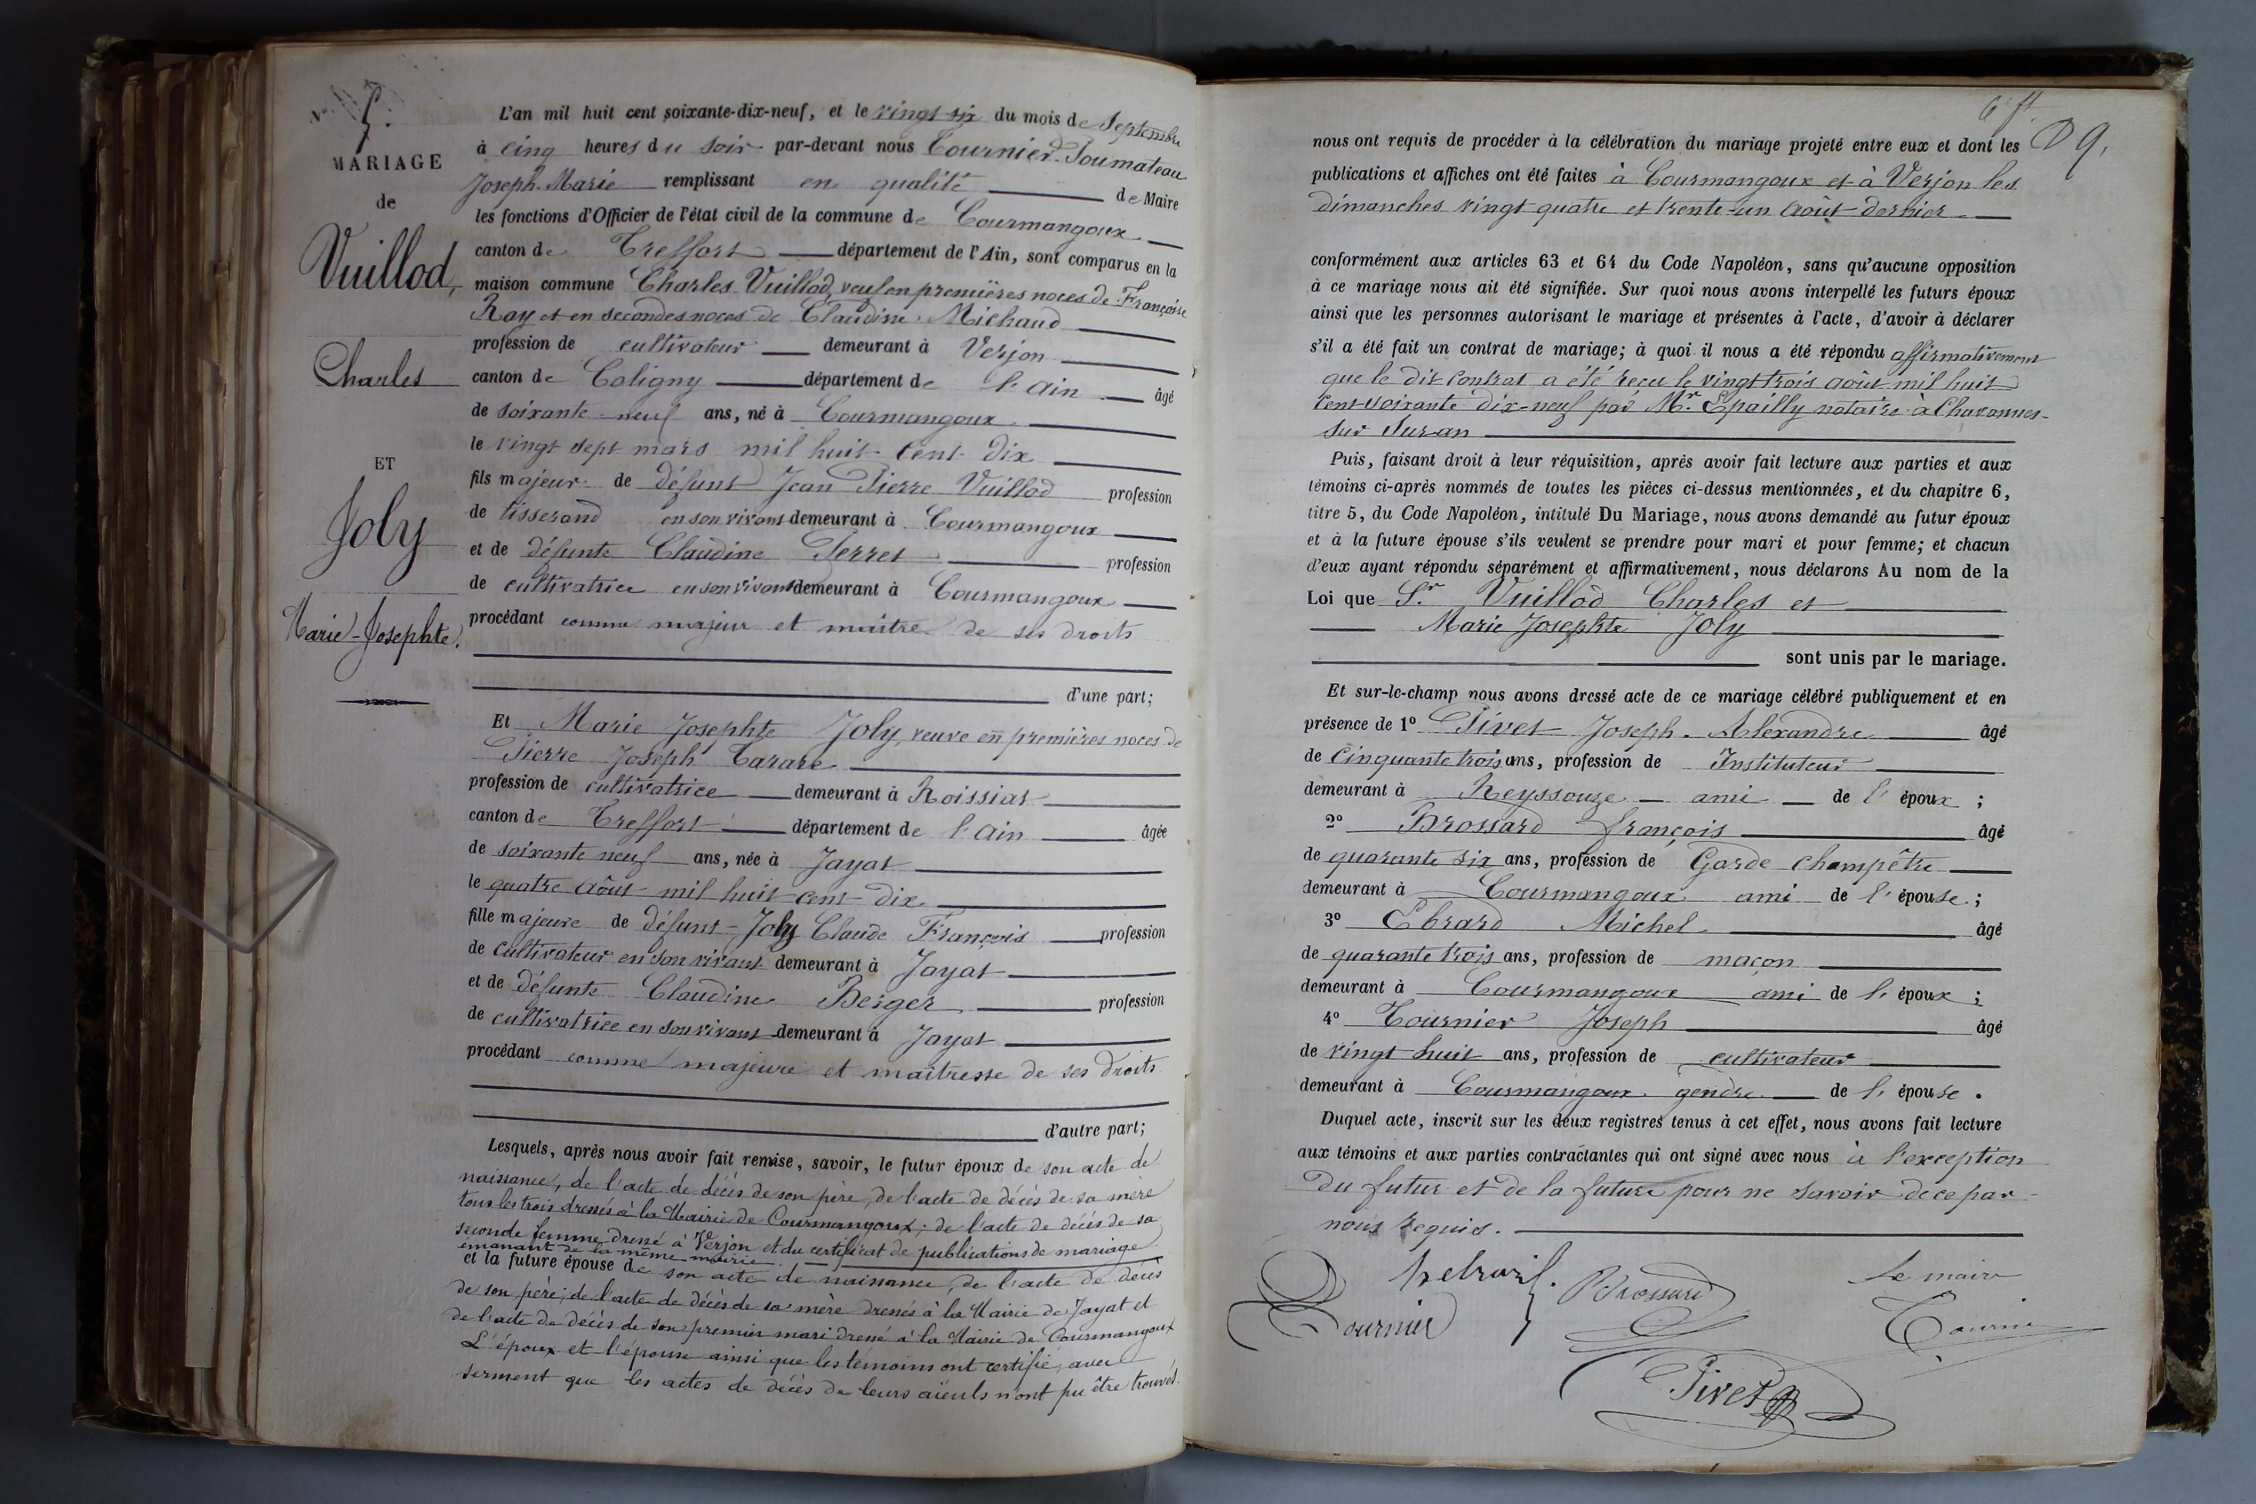 7.
MARIAGE
de
Vuillod,
Charles
ET
Joly
Marie-Josephte.
L'an mil huit cent soixante-dix-neuf, et le vingt six du mois de Septembre
à cinq heures du soir par-devant nous Tournier-Soumateau
Joseph-Marie remplissant en qualité de Maire
les fonctions d'Officier de l'état civil de la commune de Courmangoux
canton de Treffort département de l'Ain, sont comparus en la
maison commune Charles Vuillod, veuf en premières noces de Françoise
Ray et en secondes noces de Claudine Michaud
profession de cultivateur demeurant à Verjon
canton de Coligny département de l'Ain âgé
de soixante-neuf ans, né à Courmangoux
le vingt sept mars mil huit cent dix
fils majeur de défunt Jean Pierre Vuillod profession
de tisserand en son vivant demeurant à Courmangoux
et de défunte Claudine Perret profession
de cultivatrice en son vivant demeurant à Courmangoux
procédant comme majeur et maître de ses droits
d'une part;
Et Marie Josephte Joly, veuve en premières noces de
Pierre Joseph Tarare
profession de cultivatrice demeurant à Roissiat
canton de Treffort département de l'Ain âgée
de soixante neuf ans, née à Jayat
le quatre août mil huit cent dix
fille majeure de défunt Joly Claude François profession
de cultivateur en son vivant demeurant à Jayat
et de défunte Claudine Berger profession
de cultivatrice en son vivant demeurant à Jayat
procédant comme majeure et maîtresse de ses droits
d'autre part;
Lesquels, après nous avoir fait remise, savoir, le futur époux de son acte de
naissance, de l'acte de décès de son père, de l'acte de décès de sa mère
tous les trois dressés à la Mairie de Courmangoux; de l'acte de décès de sa
seconde femme dressé à Verjon et du certificat de publications de mariage
émanant de la même mairie.
et la future épouse de son acte de naissance, de l'acte de décès
de son père; de l'acte de décès de sa mère dressés à la Mairie de Jayat et
de l'acte de décès de son premier mari dressé à la Mairie de Courmangoux
L'époux et l'épouse ainsi que les témoins ont certifié, avec
serment que les actes de décès de leurs aïeuls n'ont pu être trouvés.
nous ont requis de procéder à la célébration du mariage projeté entre eux et dont les
publications et affiches ont été faites à Courmangoux et à Verjon les
dimanches vingt quatre et trente-un août dernier
conformément aux articles 63 et 64 du Code Napoléon, sans qu'aucune opposition
à ce mariage nous ait été signifiée. Sur quoi nous avons interpellé les futurs époux
ainsi que les personnes autorisant le mariage et présentes à l'acte, d'avoir à déclarer
s'il a été fait un contrat de mariage; à quoi il nous a été répondu affirmativement
que le dit contrat a été reçu le vingt trois août mil huit
cent soixante dix-neuf par Mr. Epailly notaire à Chavannes-
sur Suran
Puis, faisant droit à leur réquisition, après avoir fait lecture aux parties et aux
témoins ci-après nommés de toutes les pièces ci-dessus mentionnées, et du chapitre 6,
titre 5, du Code Napoléon, intitulé Du Mariage, nous avons demandé au futur époux
et à la future épouse s'ils veulent se prendre pour mari et pour femme; et chacun
d'eux ayant répondu séparément et affirmativement, nous déclarons Au nom de la
Loi que Sr. Vuillod Charles et
Marie Josephte Joly
sont unis par le mariage.
Et sur-le-champ nous avons dressé acte de ce mariage célébré publiquement et en
présence de 1º Pivet Joseph-Alexandre âgé
de cinquante trois ans, profession de Instituteur
demeurant à Reyssouze ami de l'époux;
2º Brossard françois âgé
de quarante six ans, profession de Garde champêtre
demeurant à Courmangoux ami de l'épouse;
3º Ebrard Michel âgé
de quarante trois ans, profession de maçon
demeurant à Courmangoux ami de l'époux;
4º Tournier Joseph âgé
de vingt huit ans, profession de cultivateur
demeurant à Courmangoux gendre de l'épouse.
Duquel acte, inscrit sur les deux registres tenus à cet effet, nous avons fait lecture
aux témoins et aux parties contractantes qui ont signé avec nous à l'exception
du futur et de la future pour ne savoir de ce par
nous requis.
Brossard
Le maire
Tournier
Tournier
Pivet